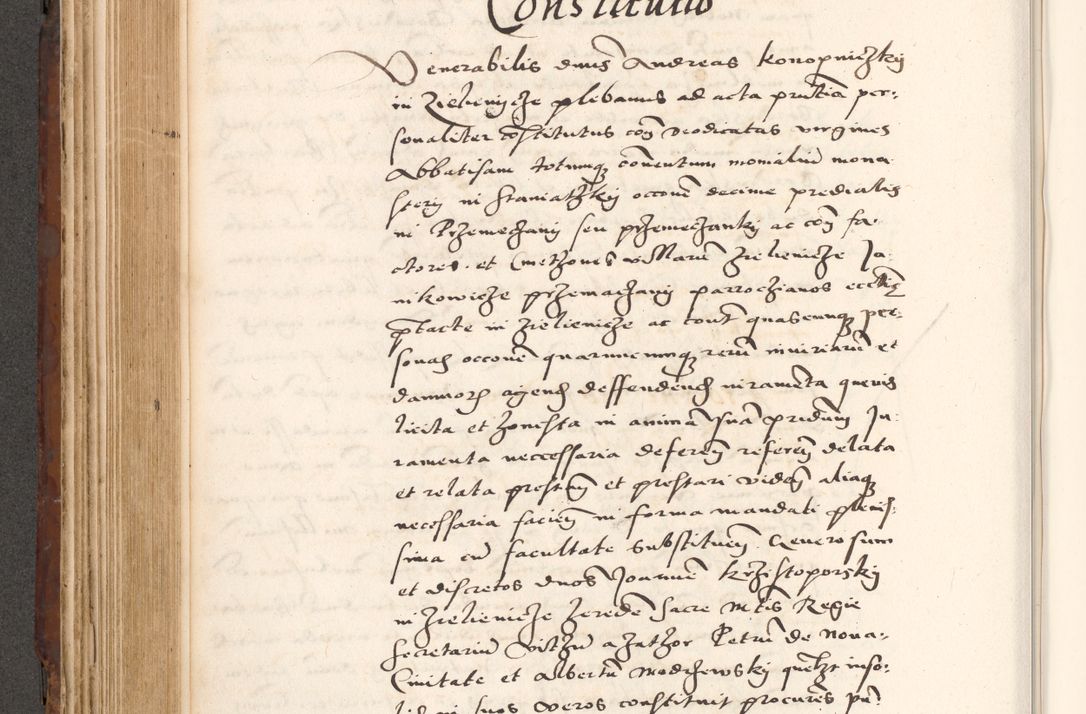 Constitutio
Venerabilis dnus Andreas Konopniczkij
in Zielieniicze plebanus ad acta pntia per-
sonaliter constitutus con deodicatas virgines
Abbatisam totumq conventum monialiu mona
sterij in Staniatzkij occone decime predialis
in Przemeczanij seu przemeczankij ac con fa-
ctores et Cmethones villaru Zielienicze Ja-
nikowicze przemaczanij parrochianos ecclie
in Zielienicze ac cont quascumq per-
sonas occone quarumcumq reru iniuriaru et
damnor agend deffendend iuramenta quevis
licita et honesta in anima sua pridum Ju-
ramenta neccessaria deferen referen delata
et relata prestan et prestari viden aliaq
necessaria facien in forma mandati plenis-
sima cu facultate substituen Generosum
et discretos dnos Joannem Krzistoporskij
in Zielienicze herede Sacre Mtis Regie
Secretariu a Zathor Petru de Nova-
Civitate et Albertu Modrzewskij quelzt inso-
lid in suos veros constituit procures pn